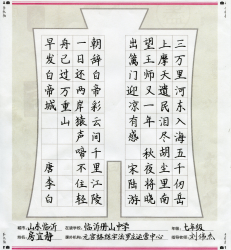 三万里河东入海五千仞岳
上摩天遗民泪尽胡尘里南
望王师又一年 秋夜将晓
出篱门迎凉有感 宋陆游
朝辞白帝彩云间千里江陵
一日还两岸猿声啼不住轻
舟已过万重山
早发白帝城 唐李白
山东临沂 临沂册山中学 七年级
房宜静 元宫格练字法罗庄运营中心 刘伟杰